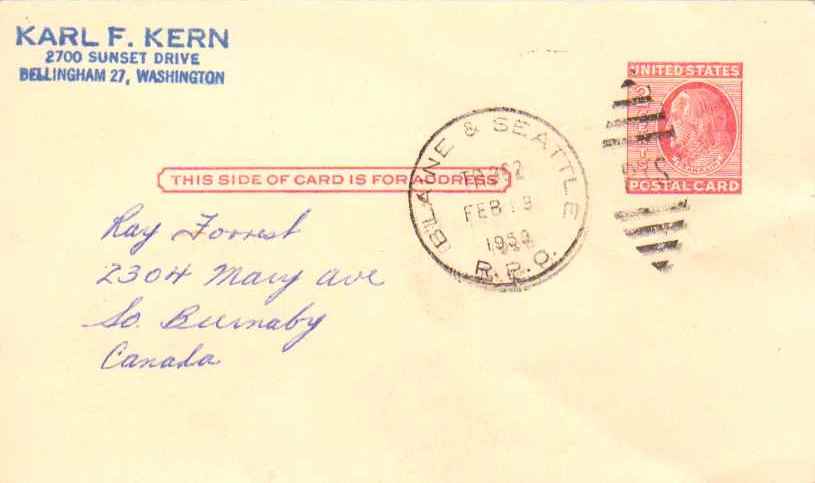 KARL F. KERN
2700 SUNSET DRIVE
BELLINGHAM 27, WASHINGTON
UNITED STATES
FRANKLIN
POSTAL CARD
BLAINE & SEATTLE
TR 262
FEB 19
R.P.O.
THIS SIDE OF CARD IS FOR ADDRESS
Ray Forrest
2304 Mary ave
So. Burnaby
Canada